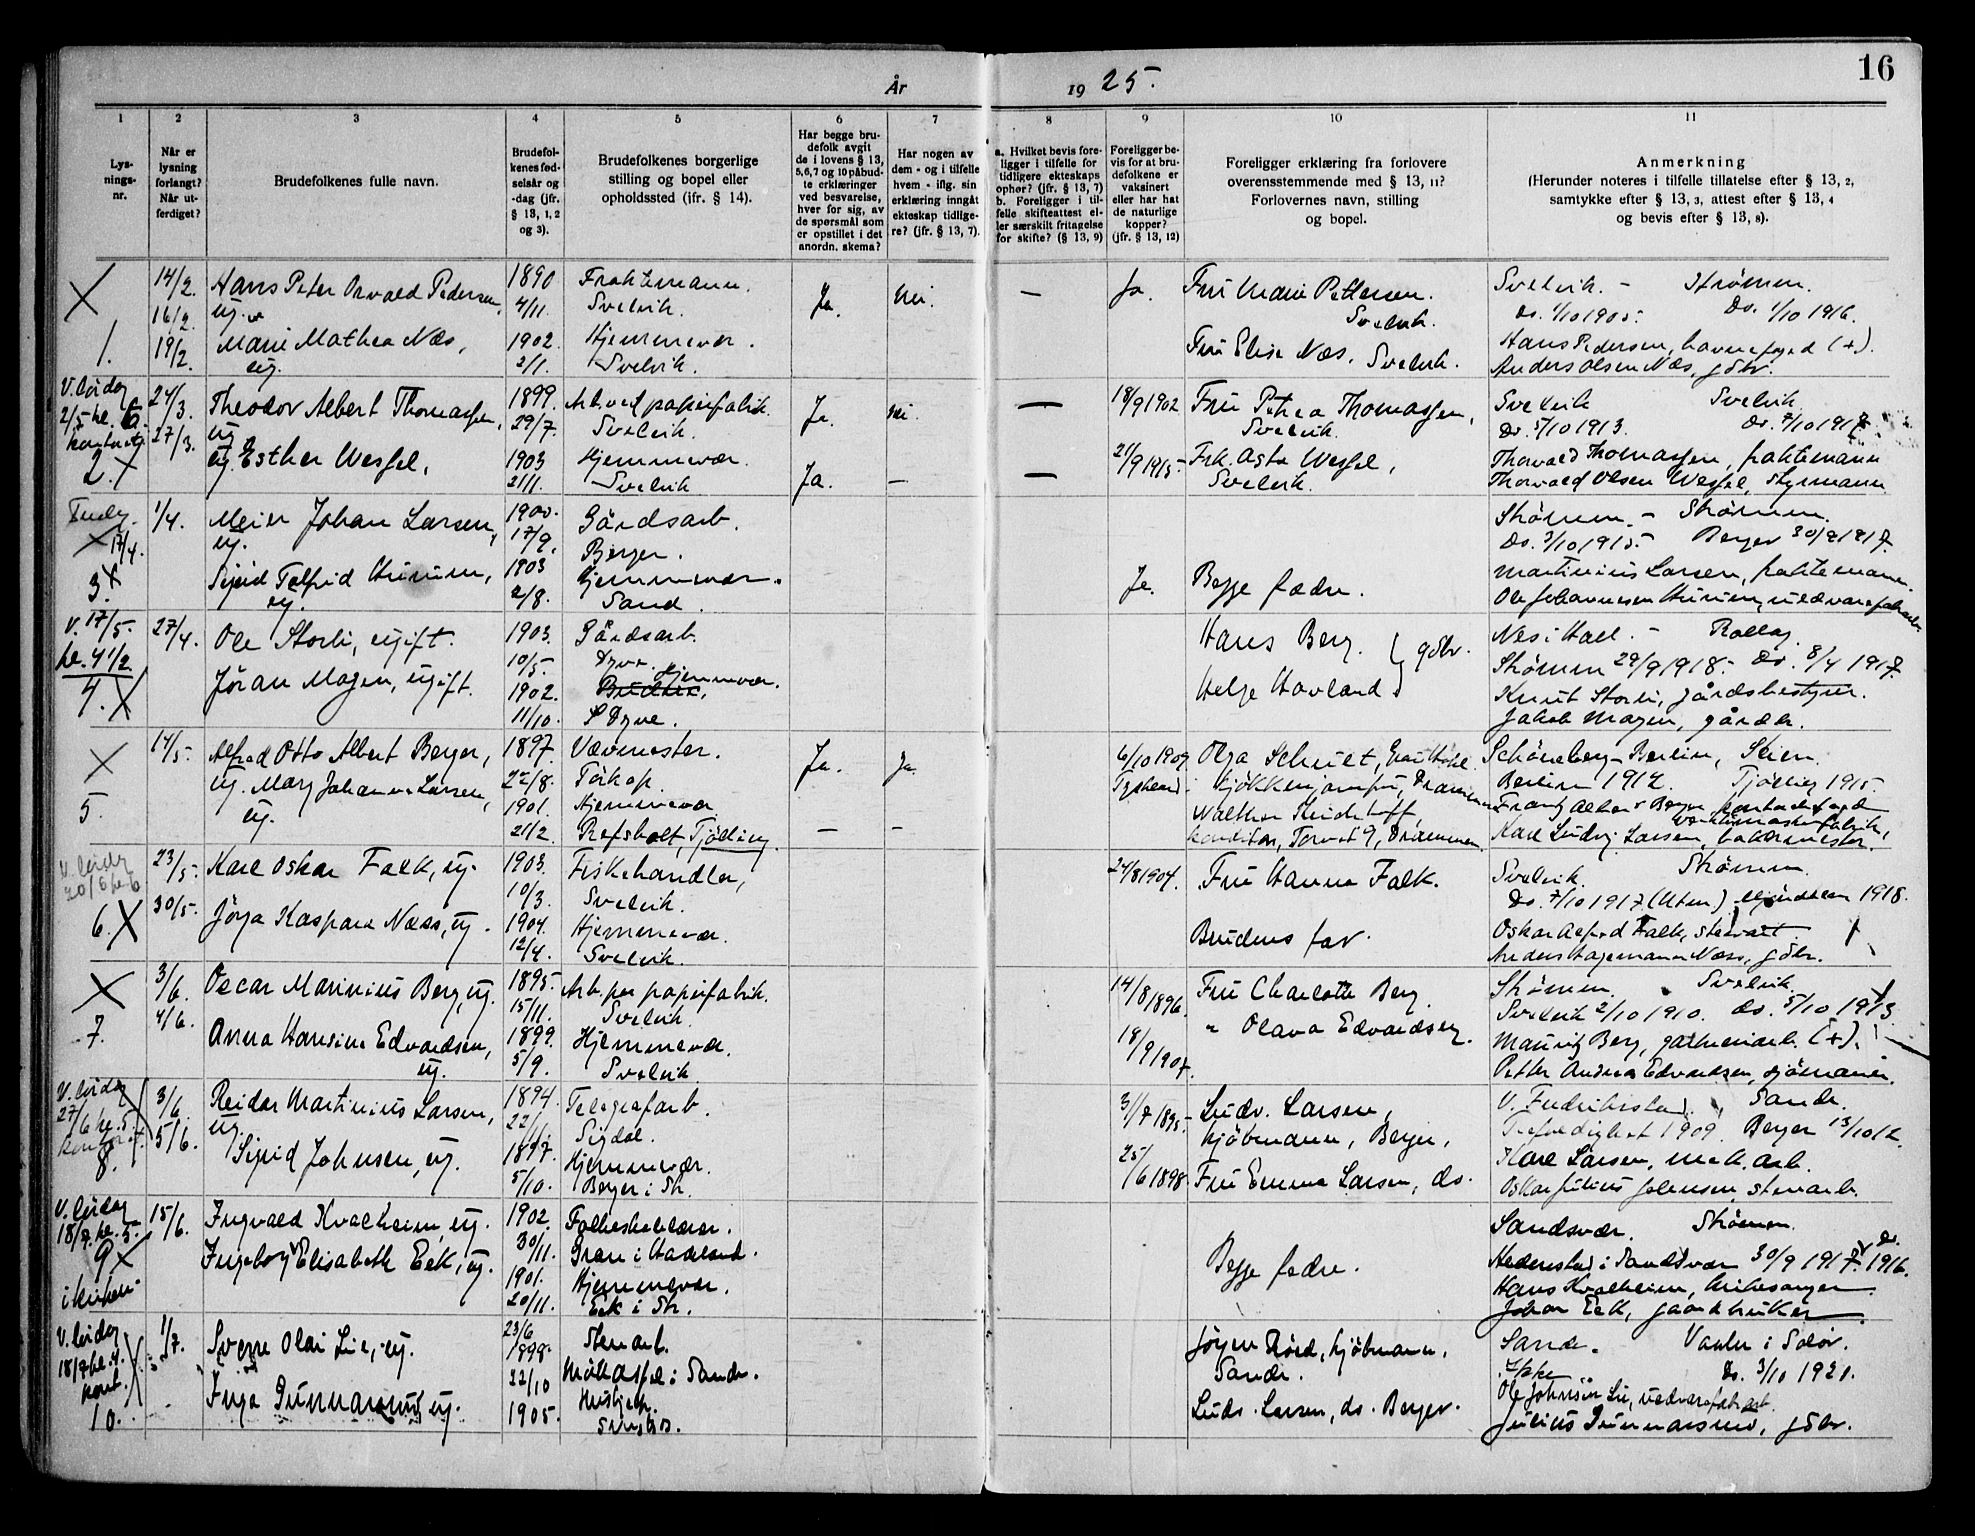 År 1925. 16
1 2 3 4 5 6 7 8 9 10 11
Lys-
nings-
nr.
Når er
lysning
forlangt?
Når ut-
ferdiget?
Brudefolkenes fulle navn.
Brudefol-
kenes fød-
selsår og
-dag (jfr.
§ 13, 1, 2
og 3).
Brudefolkenes borgerlige
stilling og bopel eller
opholdssted (ifr. § 14).
Har begge bru-
defolk avgit
de i lovens § 13,
5, 6, 7 og 10 påbud-
te erklæringer
ved besvarelse,
hver for sig, av
de spørsmål som
er opstillet i det
anordn. skema?
Har nogen av
dem - og i tilfelle
hvem - iflg. sin
erklæring inngåt
ekteskap tidlige-
re? (jfr. § 13, 7).
a. Hvilket bevis fore-
ligger i tilfelle for
tidligere ekteskaps
ophør? (jfr. § 13, 7)
b. Foreligger i til-
felle skifteattest el-
ler særskilt fritagelse
for skifte? (§ 13, 9)
Foreligger be-
vis for at bru-
defolkene er
vaksinert
eller har hat
de naturlige
kopper?
(jfr. § 13, 12)
Foreligger erklæring fra forlovere
overensstemmende med § 13, 11?
Forlovernes navn, stilling
og bopel.
Anmerkning
(Herunder noteres i tilfelle tillatelse efter § 13, 2,
samtykke efter § 13, 3, attest efter § 13, 4
og bevis efter § 13, 8).
14/2. Hans Peter Osvald Pedersen, 1890 Fraktemann. Ja. Nei. — Ja. Fru Marie Pettersen. Svelvik. - Strømm.
16/2. ug. 4/11. Svelvik. Svelvik. Ds. 1/10 1905. Ds. 1/10 1916.
1. 19/2. Marie Mathea Næs, 1902. Hjemmevær. Fru Elise Næs. Svelvik. Hans Pedersen, havnefoged (+).
ug. 2/1. Svelvik. Anders Olsen Næs, gdbr.
V. lørdag 24/3. Theodor Albert Thomassen, 1899. Arb. ved papirfabrik. Ja. nei. — 18/9 1902 Fru Petrea Thomassen, Svelvik Svelvik
2/5 kl. 6 27/3. ug 29/7. Svelvik. Svelvik. Ds. 5/10 1913. Ds. 7/10 1917.
ug. Esther Wessel, 1903 Hjemmevær. 21/9 1915. Frk. Asta Wessel, Thorvald Thomassen, fraktemann
2. 21/1. Svelvik Ja. — — Svelvik. Thorvald Olsen Wessel, Styrmann.
1/4. Meier Johan Larsen, 1900. Gårdsarb. Strømm. - Strømm.
17/4. ug. 17/9. Berger. Ds. 3/10 1915. Berger 30/9 1917.
3. Sigrid Talfrid Hurum, 1903 Hjemmevær. Ja. Begge fædre. Martinius Larsen, fraktemann.
ug. 2/8. Sand. Ole Johannesen Hurum,
V. 17/5. 27/4. Ole Storli, ugift. 1903. Gårdsarb. Hans Berg. } gdbr. Nes i Hall. - Rollag
kl. 4 1/2 10/5. Dyve. Strømm 29/9 1918. Ds. 8/4 1917.
4. Jøran Magen, ugift. 1902. Hjemmevær. Helge Havland Knut Storli, gårdsbestyrer.
11/10. S Dyve. Jakob Magen, gårdbr.
14/5. Alfred Otto Albert Berger, 1897. Vævmester. Ja. Ja. 6/10 1909 Olga Schult, Schöneberg - Berlin, Skien.
ug. Mary Johanne Larsen, 22/8. Tåkop. Tyskland. Kjøkkenjomfru, Drammen Berlin 1912. Tjølling 1915.
5. ug. 1901. Hjemmevær Walther
21/2. Refsholt, Tjølling. — — konditor, Torvet 9, Drammen. Karl Ludvig Larsen, bakermester.
V. lørdag 23/5. Karl Oskar Falk, ug. 1903. Fiskehandler, 24/8 1904. Fru Hanna Falk. Svelvik. Strømm.
20/6 kl. 6 10/3. Svelvik. Ds. 7/10 1917. (Uten) Mjøndalen 1918.
6. 30/5. Jørga Kaspara Næss, ug. 1904. Hjemmevær. Brudens far. Oskar Alfred Falk, stuart.
12/4. Svelvik. Anders Hagemann Næss, gdbr.
3/6. Oscar Marinius Berg, ug. 1895. Arb. per papirfabrik. 14/8 1896. Fru Charlotte Berg. Strømm. Svelvik.
4/6. 15/11. Svelvik. Svelvik 2/10 1910. ds. 5/10 1913.
7. Anna Hansine Edvardsen, 1899. Hjemmevær. 18/9 1907. " Olava Edvardsen. Mauritz Berg, garhmarb. (+).
ug. 5/9. Svelvik. Petter Andreas Edvardsen, sjömann.
V. lørdag 3/6. Reidar Martinius Larsen, 1894. Telegrafarb. 3/7 1895. Ludv. Larsen, V. Fredrikstad, Sande.
27/6 kl. 5 ug. 22/ Sigdal. kjøbmann, Berger, Trefoldighet 1909. Berger 13/10 12.
5/6. Sigrid Johnsen, ug. 1897. Hjemmevær. 25/6 1898. Fru Emma Larsen, ds. Karl Larsen, mek. arb.
8. 5/10. Berger i Str. Oskar Julius Johnsen stenarb.
V. lørdag 15/6. Ingvald Kvalheim, ug. 1902. Folkeskolelærer. Sandsvær. Strømm.
18/7. kl. 5. 30/11. Gran i Hadeland. Begge fædre. Hedenstad i Sandsvær 30/9 1917. ds. 1916.
9 Ingeborg Elisabeth Eek, ug. 1901. Hjemmevær. Hans Kvalheim, kirkesanger
i kirken 20/11. Eek i Str. Johan Eek, gaardbruker
V. lørdag 1/7. Sverre Olai Lie, ug. 23/6 1898. Stenarb. Jørgen Röed, kjöbmann, Sande. Vaaler i Solør.
18/7 kl. 4. i Sande. Sande. Ikke Ds. 3/10 1921.
kont. Inga Gunnarsrud, ug. 22/10 Ole Johnsen Lie,
10. 1905. Ludv. Larsen, ds. Berger. Julius Gunnarsrud, gdbr.